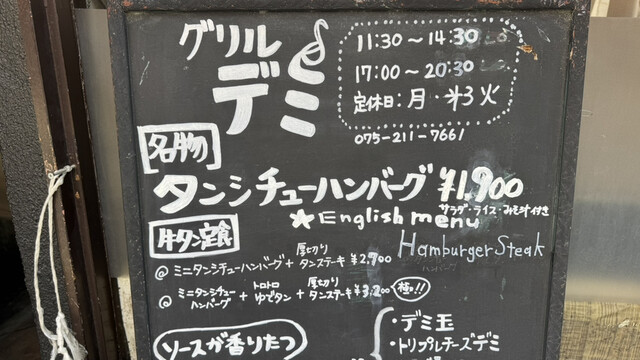 グリル
デミ
11:30～14:30
17:00～20:30
定休日：月・第3火
075-211-7661
名物
タンシチューハンバーグ ¥1,900
サラダ・ライス・みそ汁付き
★English menu
牛タン定食
Hamburger Steak
ハンバーグ
@ ミニタンシチューハンバーグ + 厚切りタンステーキ ¥2,700
@ ミニタンシチューハンバーグ + トロトロゆでタン + 厚切りタンステーキ ¥3,200 極!!
ソースが香りたつ
・デミ玉
・トリプルチーズデミ